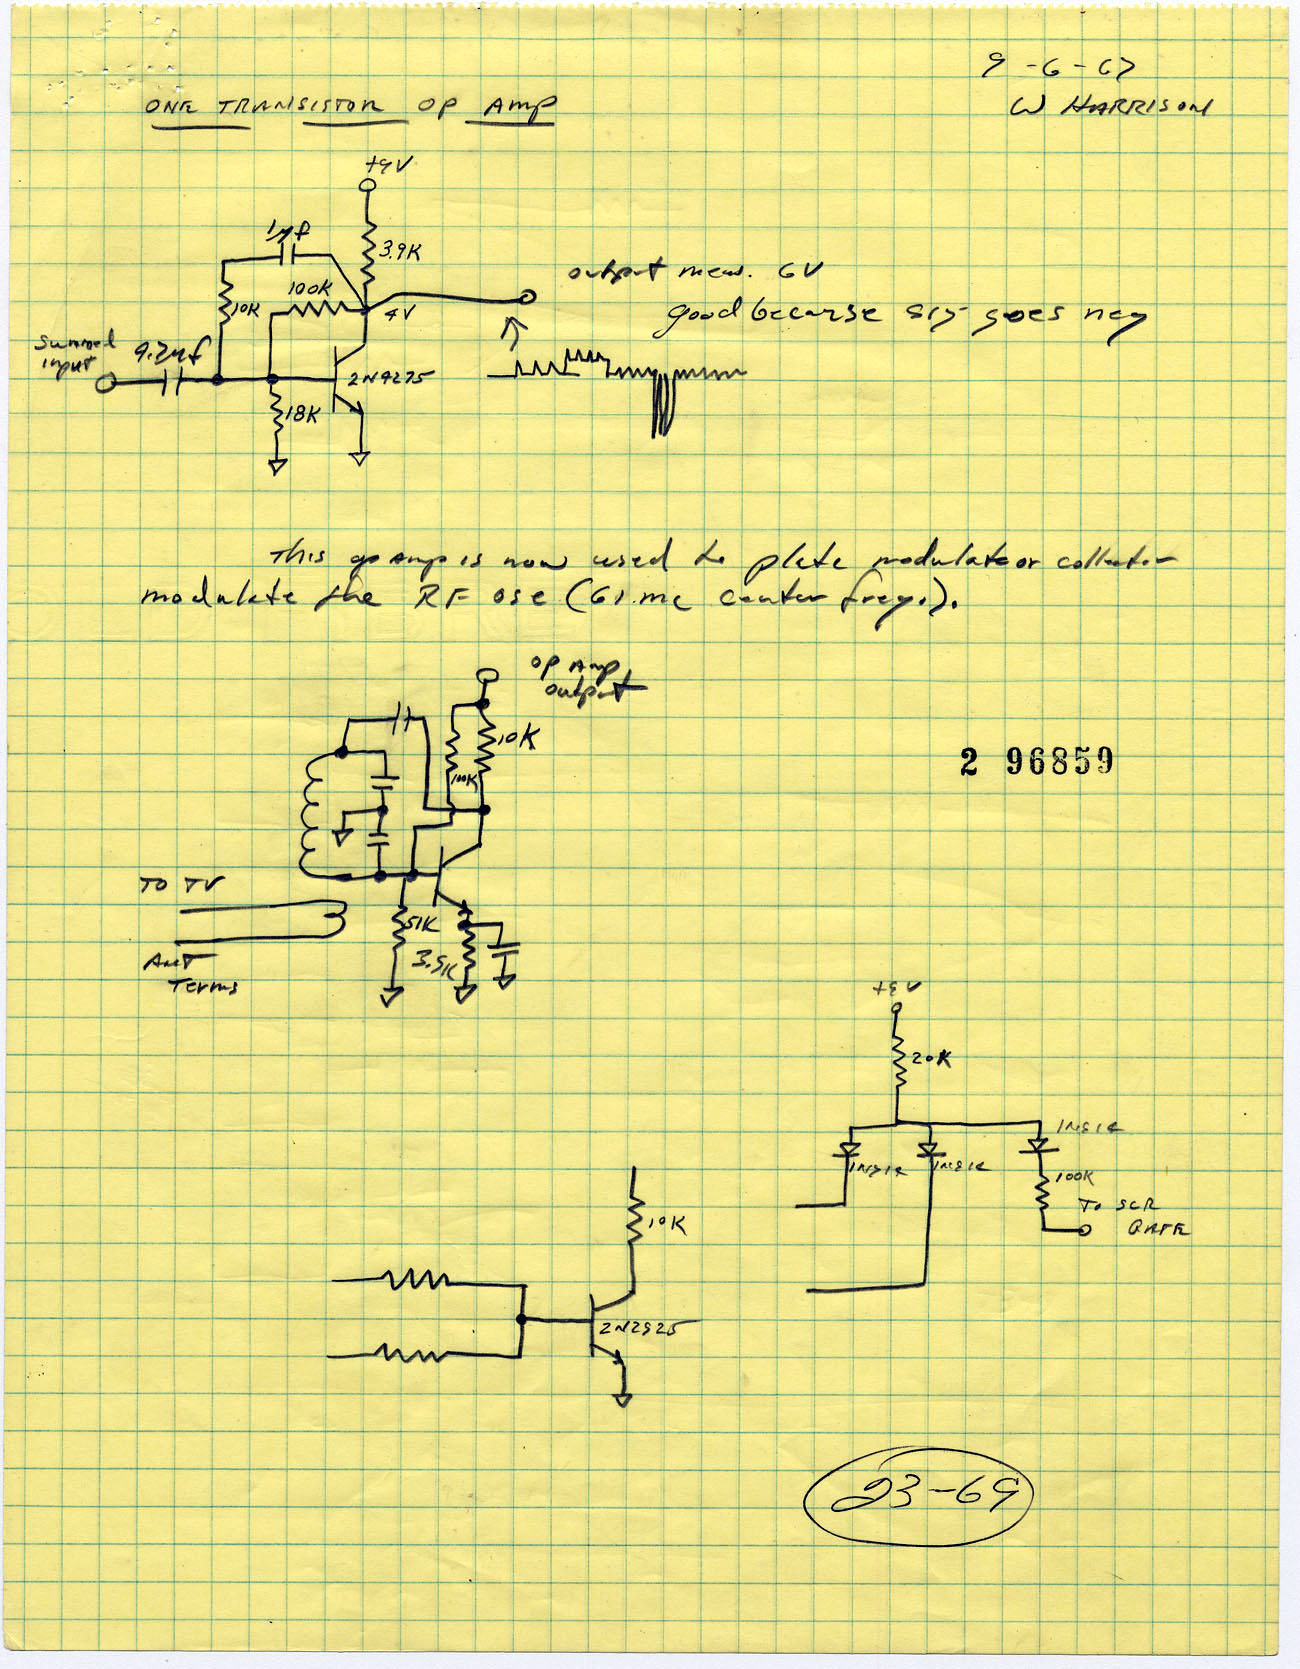 9-6-67
W HARRISON
ONE TRANSISTOR OP AMP
+9V
1μf
3.9K
100K
10K
4V
output meas. 6V
good because sig goes neg
Summed
input
9.2μf
2N4275
18K
This op amp is now used to plate modulate or collector
modulate the RF osc (61.mc center freq.).
OP Amp
output
10K
100K
2 96859
TO TV
51K
3.9K
ANT
Terms
20K
1N914
1N914
1N914
100K
TO SCR
GATE
10K
2N2925
23-69